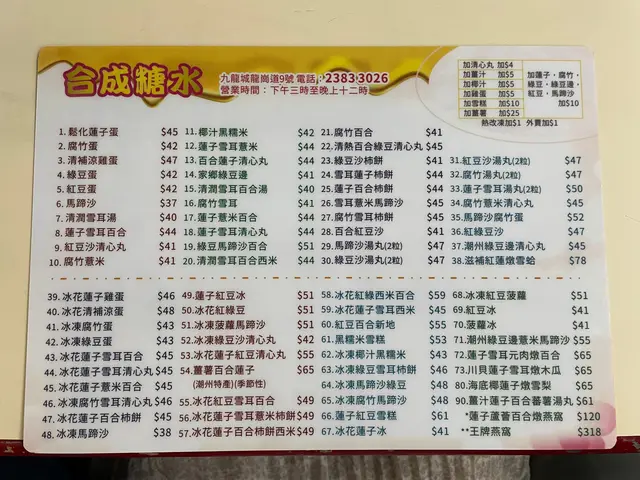 合成糖水
九龍城龍崗道9號 電話：2383 3026
營業時間：下午三時至晚上十二時
加清心丸 加$4
加薑汁 加$5
加椰汁 加$5
加雞蛋 加$5
加雪糕 加$10
加薑薯 加$25
加蓮子，腐竹，
綠豆，綠豆邊，
紅豆，馬蹄沙
加$10
熱改凍加$1 外賣加$1
1. 鬆化蓮子蛋 $45
2. 腐竹蛋 $42
3. 清補涼雞蛋 $47
4. 綠豆蛋 $42
5. 紅豆蛋 $42
6. 馬蹄沙 $37
7. 清潤雪耳湯 $40
8. 蓮子百合 $44
9. 紅豆沙清心丸 $41
10. 腐竹薏米 $41
11. 椰汁黑糯米 $42
12. 蓮子雪耳薏米 $44
13. 百合蓮子清心丸 $44
14. 家鄉綠豆邊 $41
15. 清潤雪耳百合湯 $40
16. 腐竹雪耳 $41
17. 蓮子薏米百合 $44
18. 蓮子雪耳清心丸 $44
19. 綠豆馬蹄沙百合 $51
20. 清潤雪耳百合西米 $44
21. 腐竹百合 $41
22. 清熱百合綠豆清心丸 $45
23. 綠豆沙柿餅 $41
24. 雪耳蓮子柿餅 $44
25. 蓮子百合柿餅 $44
26. 雪耳薏米馬蹄沙 $45
27. 腐竹雪耳柿餅 $45
28. 百合紅豆沙 $41
29. 馬蹄沙湯丸(2粒) $47
30. 綠豆沙湯丸(2粒) $47
31. 紅豆沙湯丸(2粒) $47
32. 腐竹湯丸(2粒) $47
33. 蓮子雪耳湯丸(2粒) $50
34. 腐竹薏米清心丸 $45
35. 馬蹄沙腐竹蛋 $52
36. 紅綠豆沙 $47
37. 潮州綠豆邊清心丸 $45
38. 滋補紅蓮燉雪蛤 $78
39. 冰花蓮子雞蛋 $46
40. 冰花清補涼 $48
41. 冰凍腐竹蛋 $43
42. 冰凍綠豆蛋 $43
43. 冰花蓮子雪耳百合 $45
44. 冰花蓮子雪耳清心丸 $45
45. 冰花蓮子薏米百合 $45
46. 冰凍腐竹雪耳清心丸 $46
47. 冰花蓮子百合柿餅 $45
48. 冰凍馬蹄沙 $38
49. 蓮子紅豆冰 $51
50. 冰花紅綠豆 $51
51. 冰凍菠蘿馬蹄沙 $51
52. 冰凍綠豆沙清心丸 $41
53. 冰花蓮子紅豆清心丸 $55
54. 薑薯百合蓮子 $65
(潮州特產)(季節性)
55. 冰花紅豆雪耳百合 $49
56. 冰花蓮子雪耳薏米柿餅 $49
57. 冰花蓮子百合柿餅西米 $49
58. 冰花紅綠西米百合 $59
59. 冰花蓮子雪耳西米 $45
60. 紅豆百合新地 $55
61. 黑糯米雪糕 $53
62. 冰凍椰汁黑糯米 $43
63. 冰凍綠豆雪耳柿餅 $46
64. 冰凍馬蹄沙綠豆 $48
65. 冰凍腐竹馬蹄沙 $48
66. 蓮子紅豆雪糕 $61
67. 冰花蓮子冰 $41
68. 冰凍紅豆菠蘿 $51
69. 紅豆冰 $41
70. 菠蘿冰 $41
71. 潮州綠豆邊薏米馬蹄沙 $55
72. 蓮子雪耳元肉燉百合 $65
73. 川貝蓮子雪耳燉木瓜 $65
80. 海底椰蓮子燉雪梨 $65
90. 薑汁蓮子百合蕃薯湯丸 $61
*蓮子蘆薈百合燉燕窩 $120
**王牌燕窩 $318